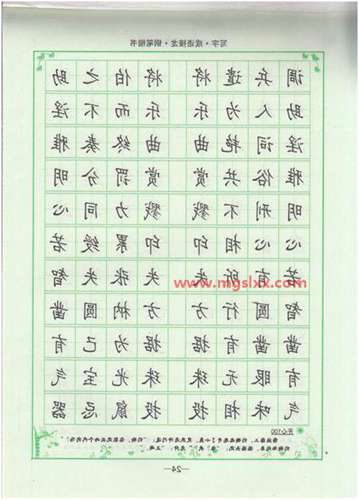 写字·成语接龙·钢笔楷书
调兵遣将 将伯之助
助人为乐 乐而不淫
淫词艳曲 曲终奏雅
雅俗共赏 赏罚分明
明刑不戮 戮力同心
心心相印 印累绶若
若有所失 失张失智
www.mgslxx.com
智圆行方 方枘圆凿
凿凿有据 据为己有
有眼无珠 珠光宝气
气味相投 投鼠忌器
开心100
—24—